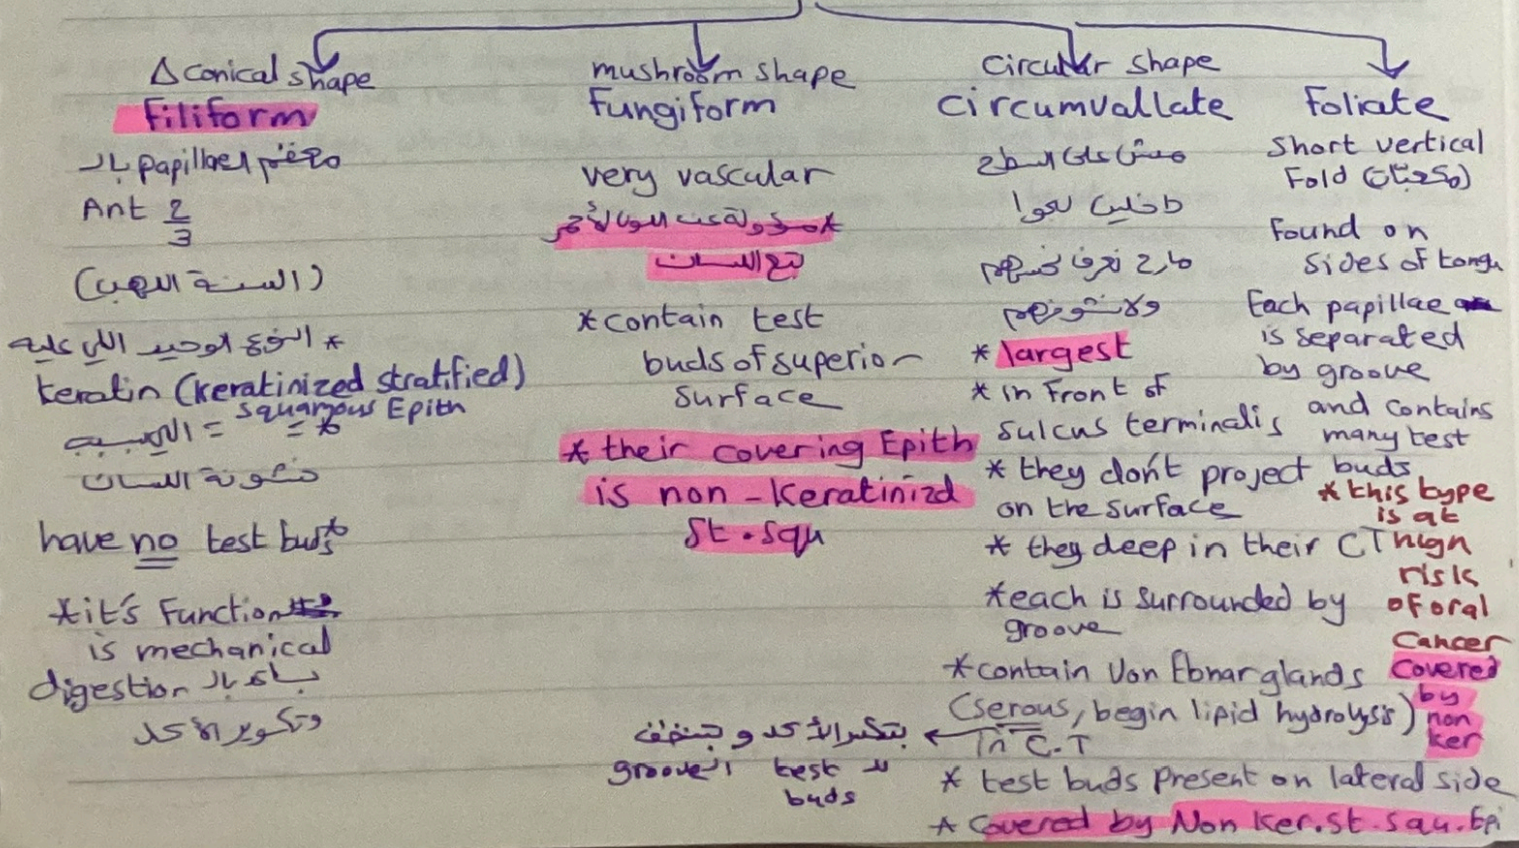 Δ conical shape
Filiform
معظم ال papillae بال
Ant 2/3
(السنة اللهب)
* النوع الوحيد اللي عليه
keratin (keratinized stratified)
squamous Epith
خشونة اللسان
have no test buds
* it's Function
is mechanical
digestion
وتكوير الأكل
mushroom shape
Fungiform
very vascular
* مسؤولة عن اللون الأحمر
بتاع اللسان
* contain test
buds of superior
surface
* their covering Epith
is non-keratinizd
St. squ
circular shape
circumvallate
مش على السطح
داخلين لجوا
* largest
* in front of
sulcus terminalis
* they don't project
on the surface
* they deep in their CT
* each is surrounded by
groove
* contain Von Ebnar glands
(serous, begin lipid hydrolysis)
in C.T
بتكسر الأكل و بتنظف
groove ال test
buds
* test buds present on lateral side
* covered by Non ker. st. squ. Epi
Foliate
short vertical
Fold
Found on
sides of tongu
Each papillae
is separated
by groove
and contains
many test
buds
* this type
is at
high
risk
of oral
cancer
covered
by
non
ker